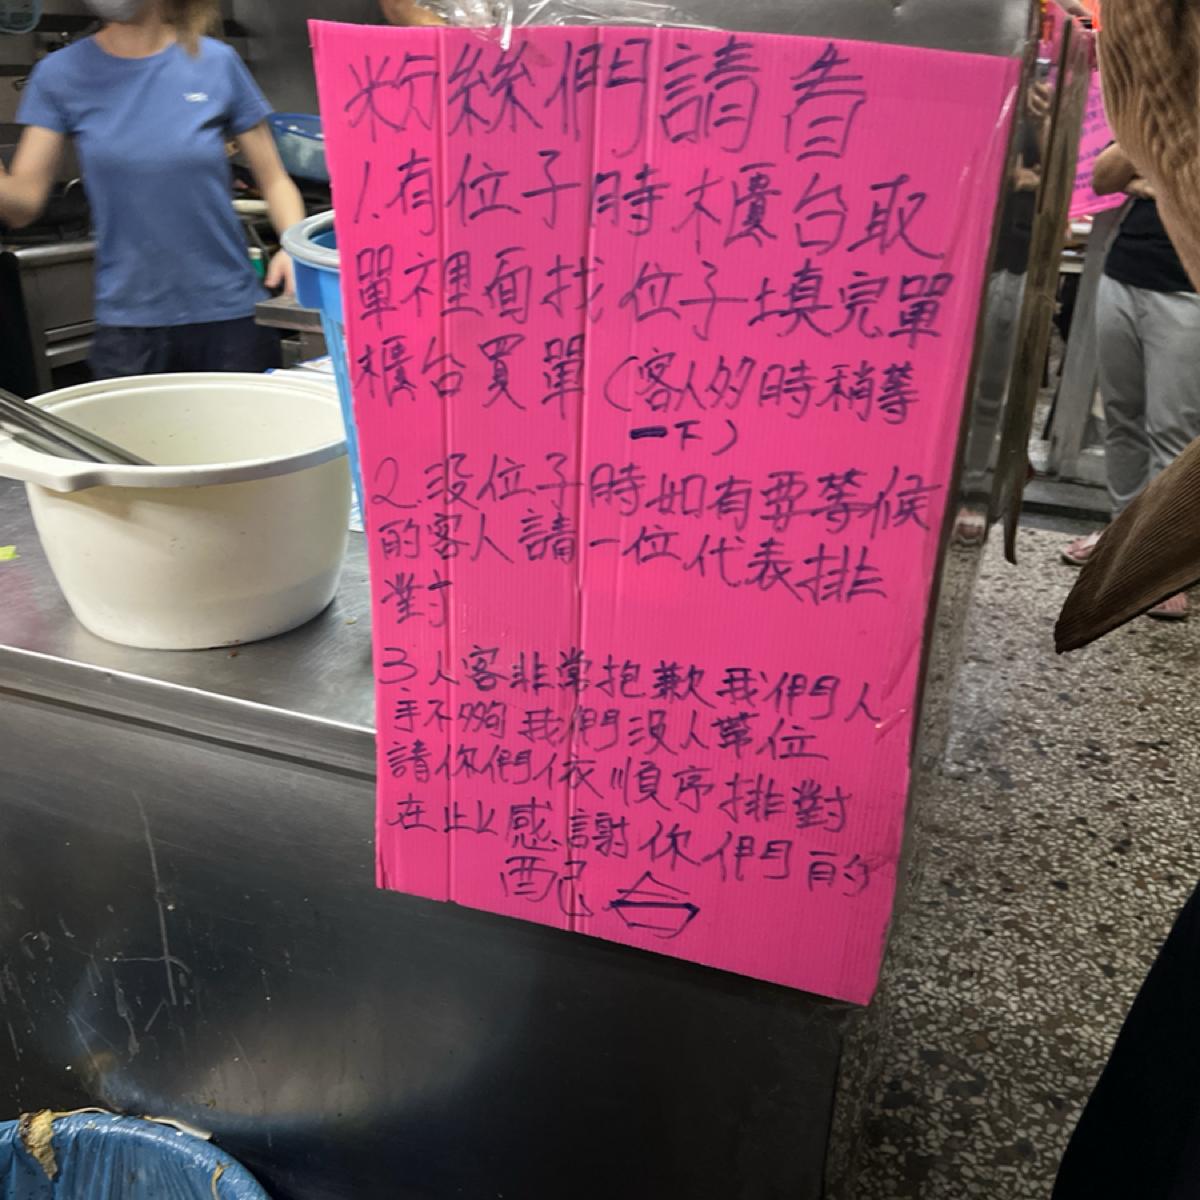 粉絲們請看
1.有位子時櫃台取
單裡面找位子填完單
櫃台買單(客人多時稍等
一下)
2.没位子時如有要等候
的客人請一位代表排
對
3.人客非常抱歉我們人
手不夠我們没人帶位
請你們依順序排對
在止感謝你們的
配合